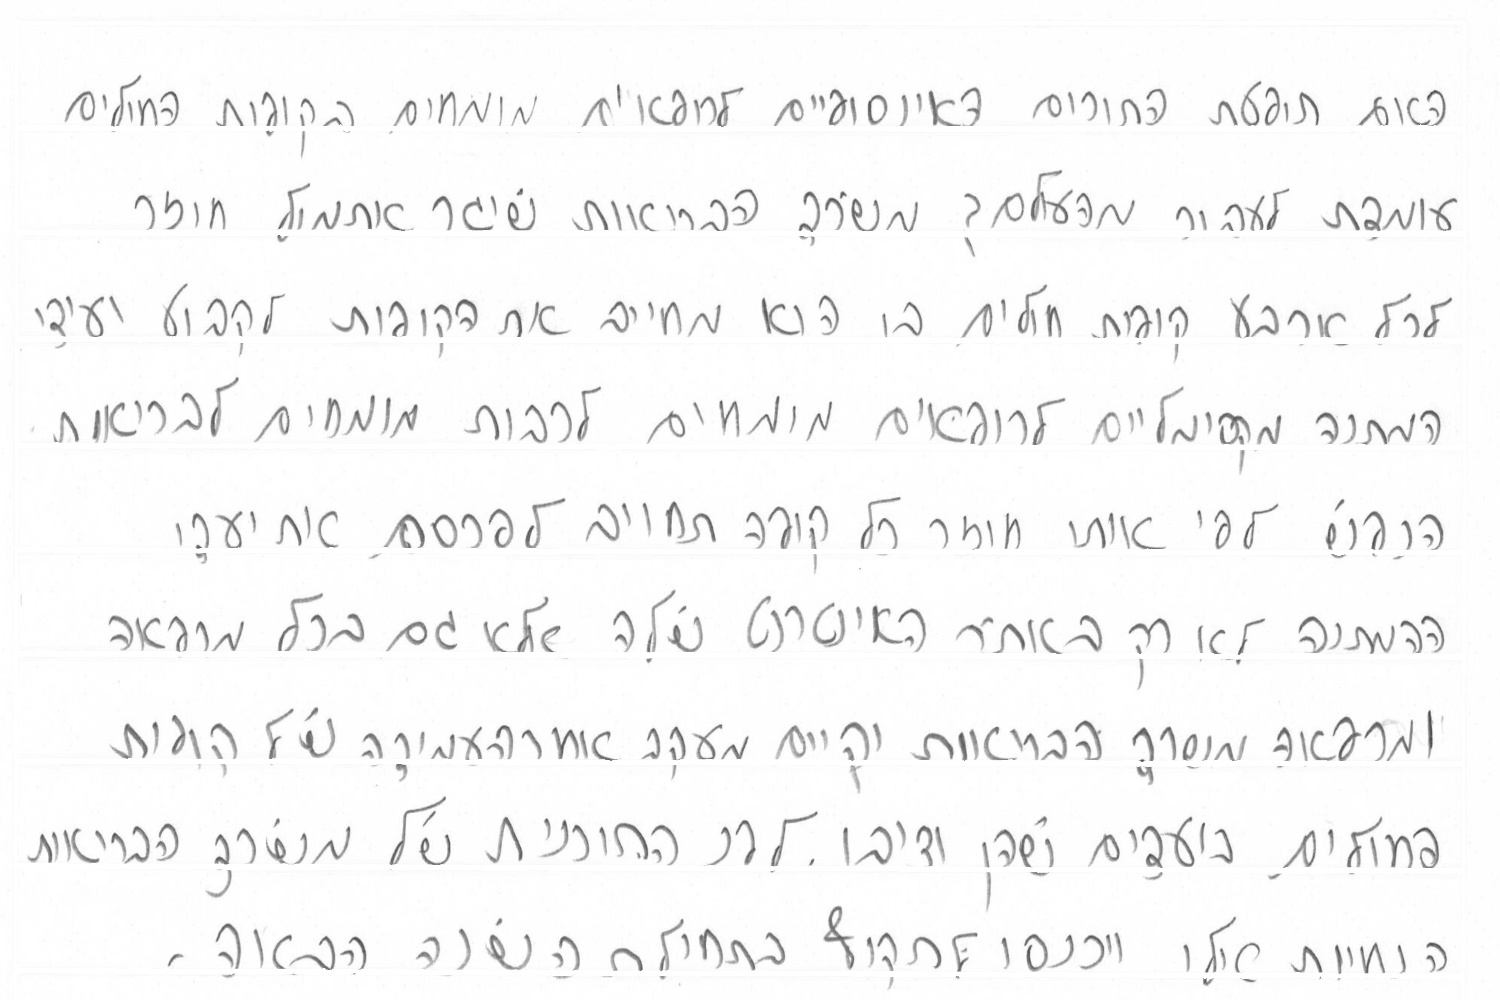 האם תופעת התורים האינסופיים לרופאים מומחים בקופות החולים
עומדת לעבור מהעולם? משרד הבריאות שיגר אתמול חוזר
לכל ארבע קופות חולים בו הוא מחייב את הקופות לקבוע יעדי
המתנה מקסימליים לרופאים מומחים לרבות מומחים לבריאות
הנפש לפי אותו חוזר כל קופה תחויב לפרסם את יעדי
ההמתנה לא רק באתר האינטרנט שלה אלא גם בכל מרפאה
ומרפאה משרד הבריאות יקיים מעקב אחר העמידה של קופות
החולים ביעדים שהן ודיבו. לפי התוכנית של משרד הבריאות
הנחיות אילו ייכנסו לתקוף בתחילת השנה הבאה.